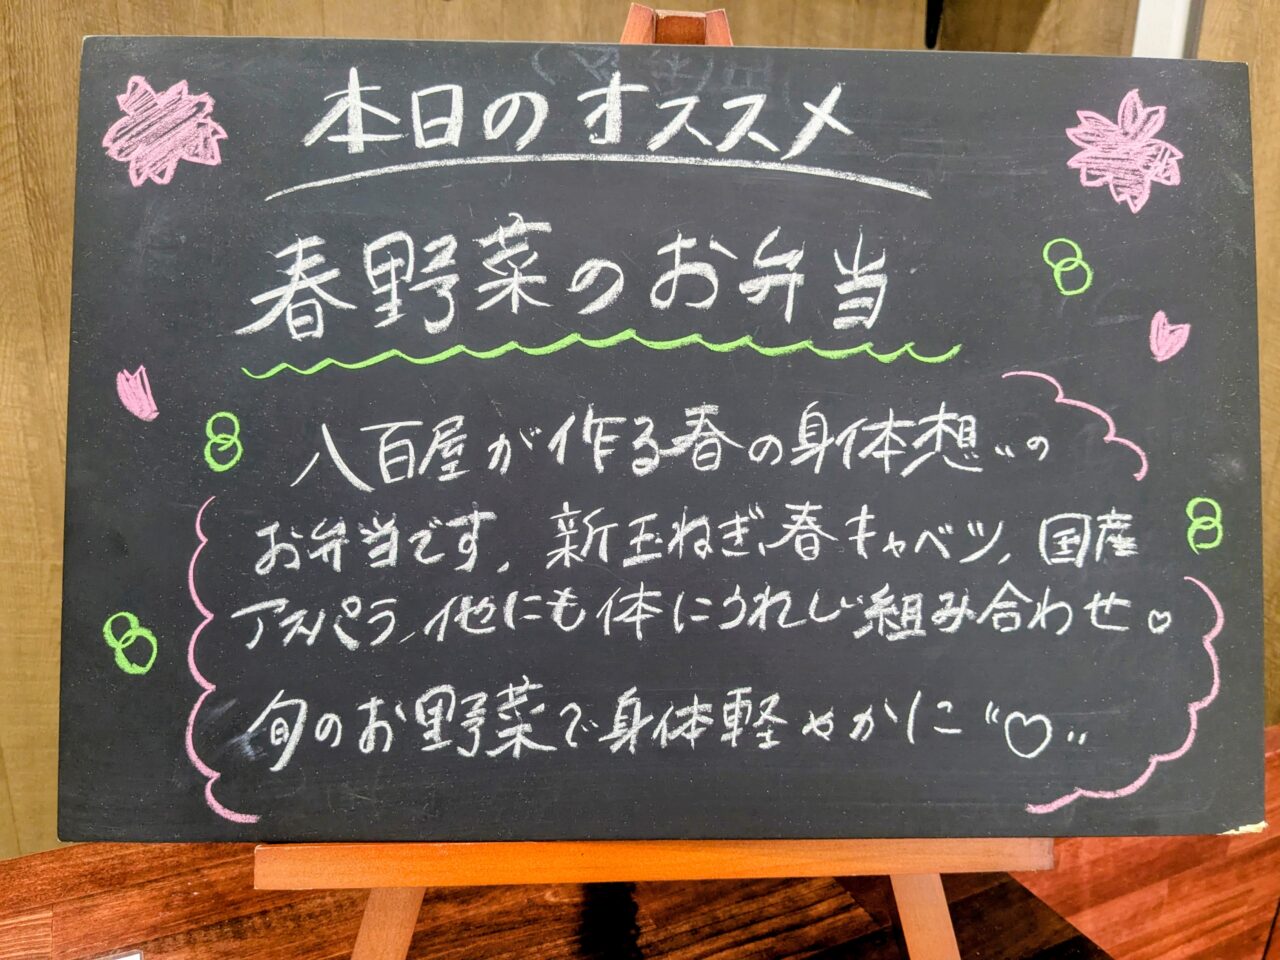 本日のオススメ
春野菜のお弁当
八百屋が作る春の身体想いの
お弁当です。新玉ねぎ、春キャベツ、国産
アスパラ、他にも体にうれしい組み合わせ♡
旬のお野菜で身体軽やかに♡